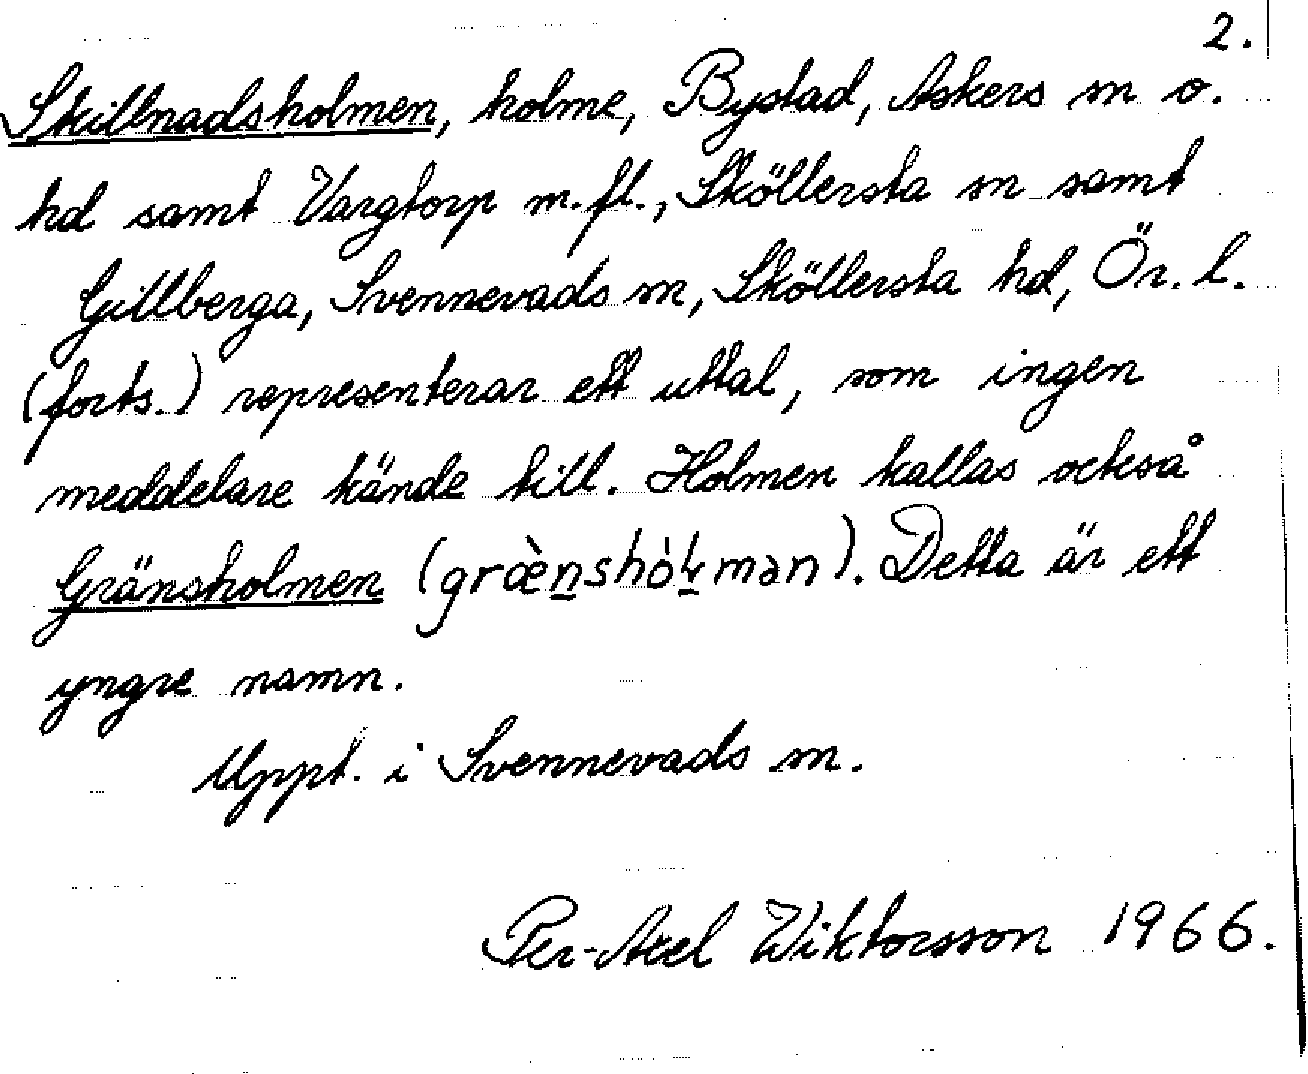 2.
Skillnadsholmen, holme, Bystad, Askers sn o.
hd samt Vargtorp m.fl., Sköllersta sn samt
Gillberga, Svennevads sn, Sköllersta hd, Ör. l.
(forts.) representerar ett uttal, som ingen
meddelare kände till. Holmen kallas också
Gränsholmen. Detta är ett
yngre namn.
Uppt. i Svennevads sn.
Per-Axel Wiktorsson 1966.